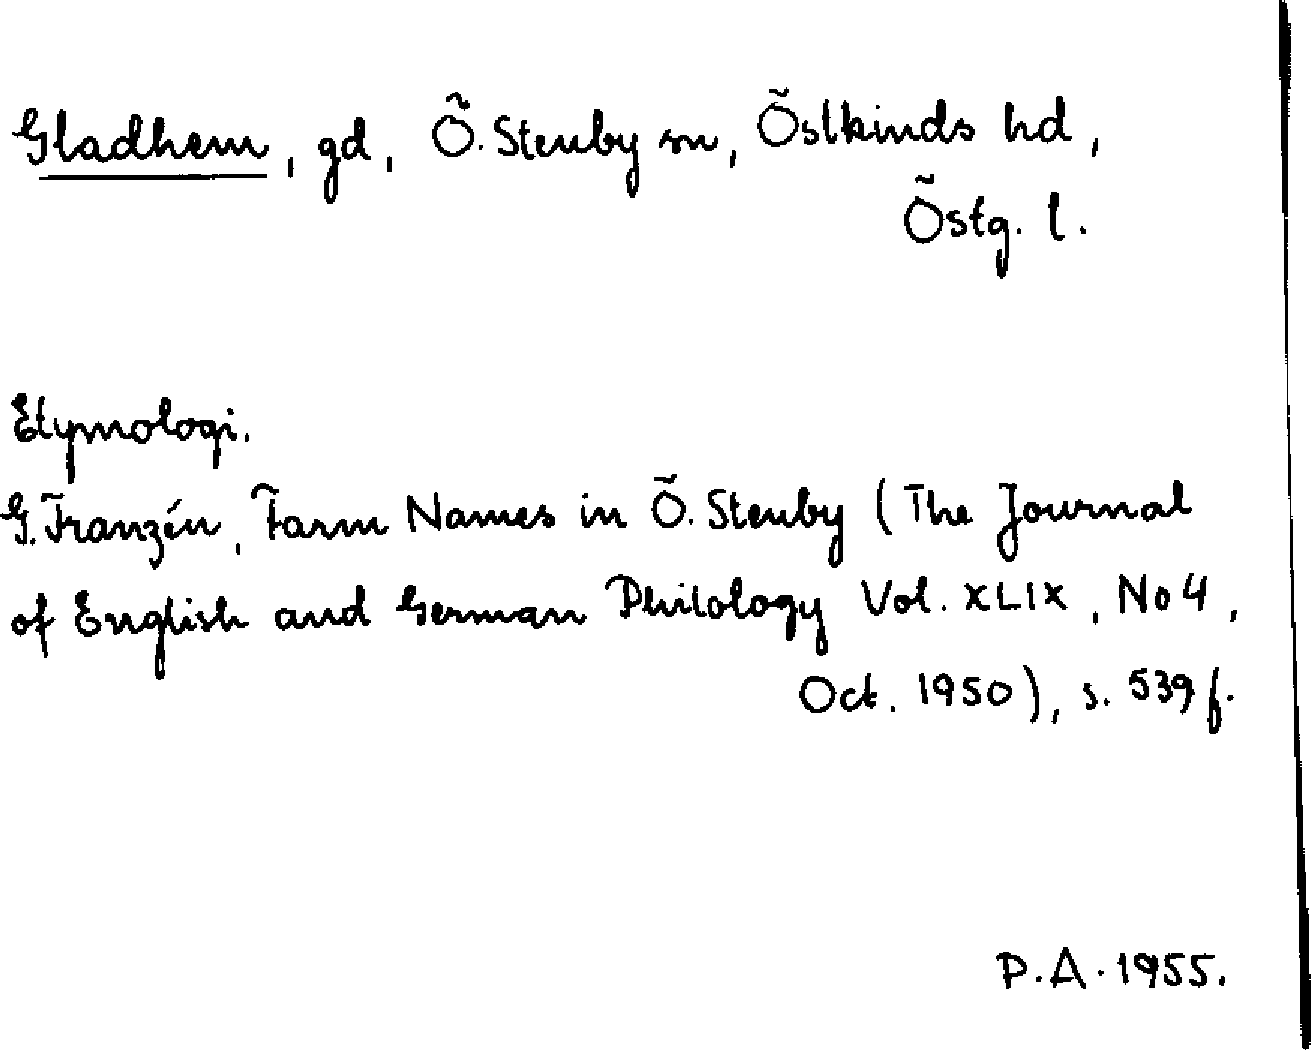 Gladhem, gd, Ö. Stenby sn, Östkinds hd,
Östg. l.
Etymologi.
G. Franzén, Farm Names in Ö. Stenby (The Journal
of English and German Philology Vol. XLIX, No 4,
Oct. 1950), s. 539 f.
P.A. 1955.